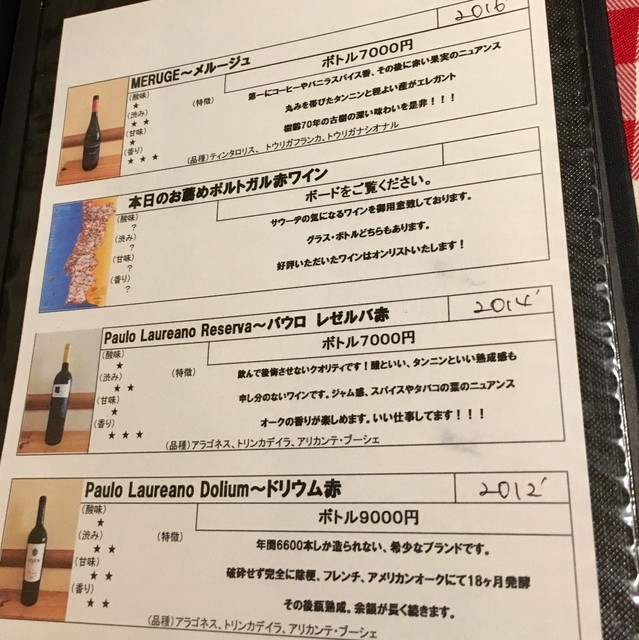 MERUGE～メルージュ
2016'
ボトル7000円
(酸味)
★
(渋み)
★ ★
(甘味)
★
(香り)
★ ★ ★
(特徴)
第一にコーヒーやバニラスパイス香、その後に赤い果実のニュアンス
丸みを帯びたタンニンと程よい産がエレガント
樹齢70年の古樹の深い味わいを是非！！！
(品種)ティンタロリス、トウリガフランカ、トウリガナシオナル
本日のお薦めポルトガル赤ワイン
ボードをご覧ください。
(酸味)
?
(渋み)
?
(甘味)
?
(香り)
?
サウーデの気になるワインを御用意致しております。
グラス・ボトルどちらもあります。
好評いただいたワインはオンリストいたします！
Paulo Laureano Reserva～パウロ レゼルバ赤
2014'
ボトル7000円
(酸味)
★
(渋み)
★ ★
(甘味)
★
(香り)
★ ★ ★
(特徴)
飲んで後悔させないクオリティです！酸といい、タンニンといい熟成感も
申し分のないワインです。ジャム感、スパイスやタバコの葉のニュアンス
オークの香りが楽しめます。いい仕事してます！！！
(品種)アラゴネス、トリンカデイラ、アリカンテ・ブーシェ
Paulo Laureano Dolium～ドリウム赤
2012'
ボトル9000円
(酸味)
★
(渋み)
★ ★
(甘味)
★ ★
(香り)
★ ★
(特徴)
年間6600本しか造られない、希少なブランドです。
破砕せず完全に除梗、フレンチ、アメリカンオークにて18ヶ月発酵
その後瓶熟成。余韻が長く続きます。
(品種)アラゴネス、トリンカデイラ、アリカンテ・ブーシェ